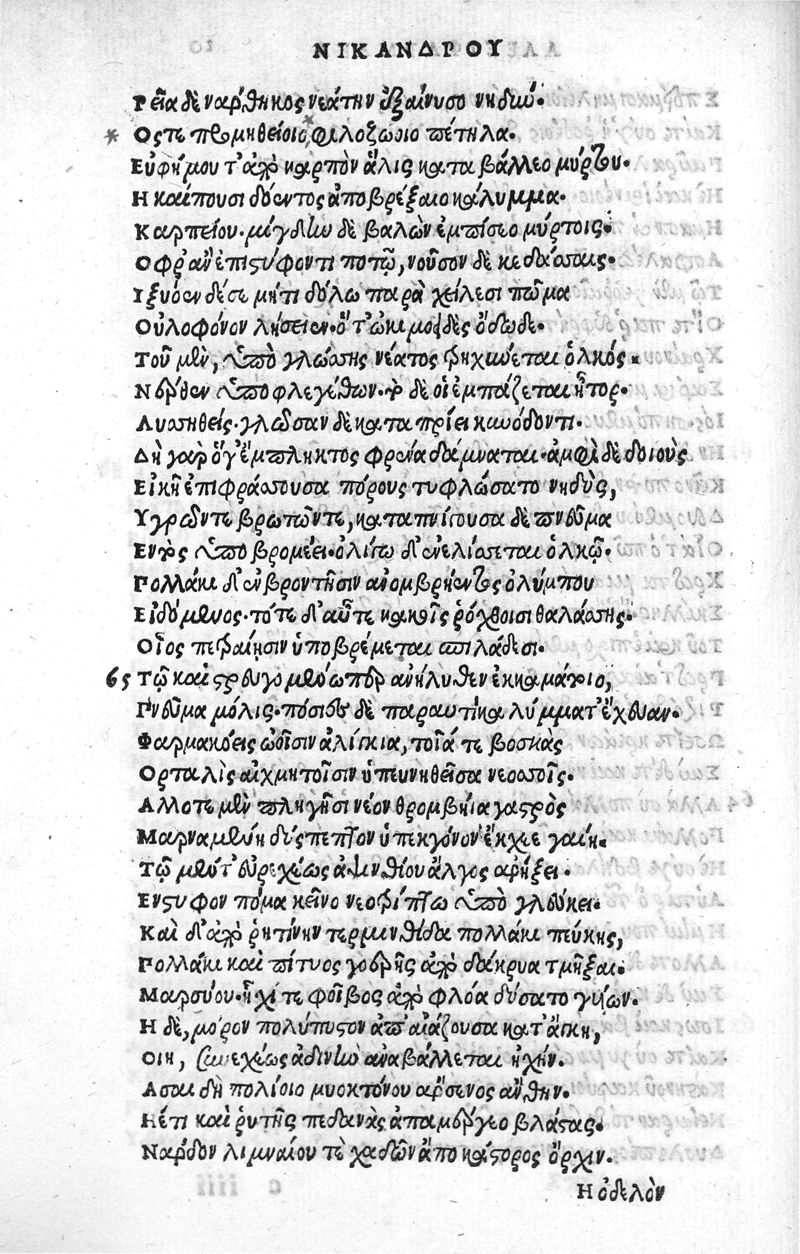 ΝΙΚΑΝΔΡΟΥ
Ρεῖα δὲ νάρθηκος νεάτην ἐξαίνυσο νηδύν·
* Ος τε προμηθείοιο,* φιλοζώοιο πέτηλα·
Εὐφήμου τ' ἀπὸ καρπὸν ἅλις καταβάλλεο μύρτου·
Η καίπου σιδόεντος ἀποβρέξαιο κάλυμμα·
Καρπείου· μίγδην δὲ βαλὼν ἐμπίσεο μύρτοις·
Οφρ' ἂν ἐπιστύφοντι ποτῷ, νοῦσον δὲ κεδαίσαις·
Ιξυόεν δέσε μήτι δόλῳ παρὰ χείλεσι πῶμα
Οὐλοφόνον λήσειεν· ὅ τ' ὠκιμοειδὲς ὄδωδε·
Τοῦ μὲν, ὑπὸ γλώσσης νέατος τρηχύνεται ὁλκός·
Νέρθεν ὑποφλεγέθων· τὸ δέ οἱ ἐμπάζεται ἦτορ·
Λυσσηθείς· γλῶσσαν δὲ καταπρίει κυνόδοντι·
Δὴ γὰρ ὅγ' ἔμπληκτος φρένα δάμναται· ἀμφὶ δὲ δοιοὺς
Εἰκῆ ἐπιφράσσουσα πόρους τυφλώσατο νηδὺς,
Υγρῶντε βρωτῶντε, καταπνίγουσα δὲ πνεῦμα
Εντὸς ὑποβρομέει· ὀλίγῳ δ' ἐνελίσσεται ὁλκῷ·
Πολλάκι δ' ἐν βροντῆσιν ἀνομβρήεντος ὀλύμπου
Εἰδόμενος· τότε δ' αὖτε κακῆς ῥόχθοισι θαλάσσης·
Οἷος πετραίησιν ὑποβρέμεται σπιλάδεσι·
65 Τῷ καὶ στρευγομένῳ περ ἀνήλυθεν ἐκ καμάτοιο,
Πνεῦμα μόλις· πόσιες δὲ παραυτίκα λύμματ' ἔχευαν·
Φαρμακόεις ὠοῖσιν ἀλίγκια, τοῖά τε βοσκὰς
Ορταλὶς αἰχμητοῖσιν ὑπευνηθεῖσα νεοσσοῖς·
Αλλοτε μὲν πληγῆσι νέον θρομβήϊα γαστρὸς
Μαρναμένη δύσπεπτον ὑπεκγόνον ἔκχεε γαίη·
Τῷ μέν τ' εὐρεχέως ἀψινθίου ἄλγος ἀρήξει·
Ενστυφον πόμα κεῖνο νεοτρίπτῳ ὑπὸ γλεύκει·
Καὶ δ' ἀπὸ ῥητίνην τερμινθίδα πολλάκι πεύκης,
Πολλάκι καὶ πίτυος γοερῆς ἀπὸ δάκρυα τμήξαι·
Μαρσύου· ἧχί τε φοῖβος ἀπὸ φλόα δύσατο γυίων·
Η δὲ, μόρον πολύπυστον ἀπ' αἰάζουσα κατ' ἄγκη,
Οιη, συνεχέως ἀδινὴν ἀναβάλλεται ἠχήν·
Ασαι δὴ πολίοιο μυοκτόνου ἄρσενος ἄνθην·
Ηέτι καὶ ῥυτῆς πεδανὰς ἀπαμέργεο βλάστας·
Νάρδον λιμναίου τε χαδὼν ἄπο κάστορος ὄρχιν.
Η ὀδελὸν